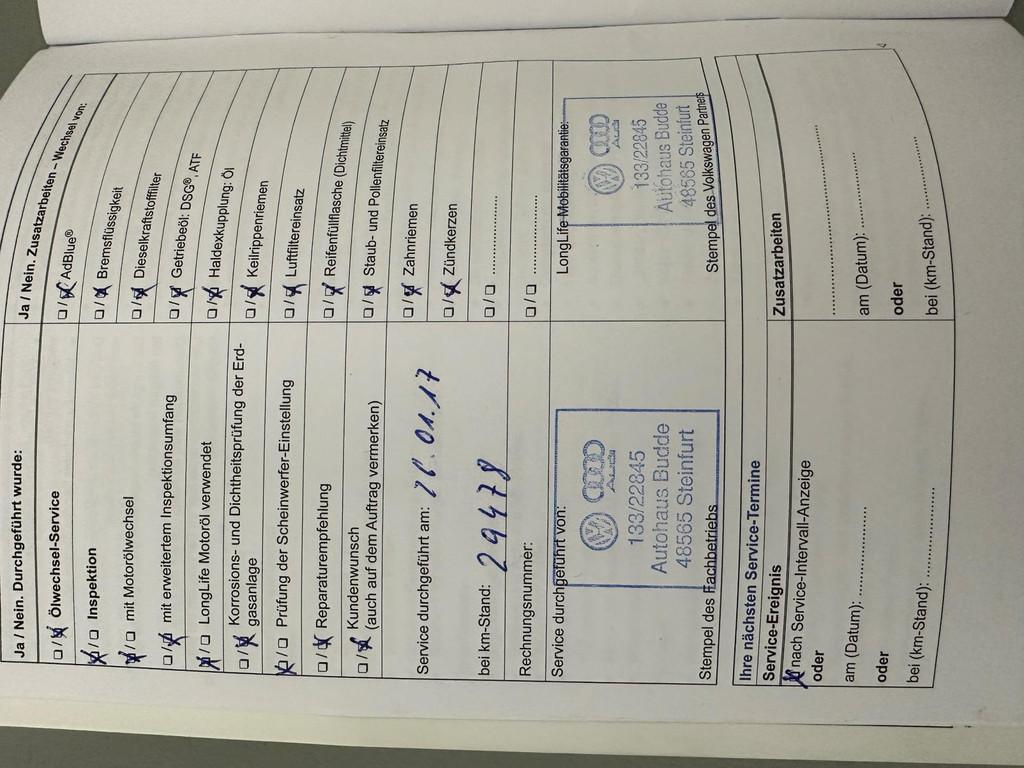 Ja / Nein. Durchgeführt wurde:
☐ / ☒ Ölwechsel-Service
☒ / ☐ Inspektion
☒ / ☐ mit Motorölwechsel
☐ / ☒ mit erweitertem Inspektionsumfang
☒ / ☐ LongLife Motoröl verwendet
☐ / ☒ Korrosions- und Dichtheitsprüfung der Erd-
gasanlage
☒ / ☐ Prüfung der Scheinwerfer-Einstellung
☐ / ☒ Reparaturempfehlung
☐ / ☒ Kundenwunsch
(auch auf dem Auftrag vermerken)
Service durchgeführt am: 26.01.17
bei km-Stand: 29478
Rechnungsnummer:
Service durchgeführt von:
Audi
133/22845
Autohaus Budde
48565 Steinfurt
Stempel des Fachbetriebs
Ja / Nein. Zusatzarbeiten – Wechsel von:
☐ / ☒ AdBlue®
☐ / ☒ Bremsflüssigkeit
☐ / ☒ Dieselkraftstofffilter
☐ / ☒ Getriebeöl: DSG®, ATF
☐ / ☒ Haldexkupplung: Öl
☐ / ☒ Keilrippenriemen
☐ / ☒ Luftfiltereinsatz
☐ / ☒ Reifenfüllflasche (Dichtmittel)
☐ / ☒ Staub- und Pollenfiltereinsatz
☐ / ☒ Zahnriemen
☐ / ☒ Zündkerzen
☐ / ☐ ................
☐ / ☐ ................
LongLife Mobilitätsgarantie:
Audi
133/22845
Autohaus Budde
48565 Steinfurt
Stempel des Volkswagen Partners
Ihre nächsten Service-Termine
Service-Ereignis
☒ nach Service-Intervall-Anzeige
oder
am (Datum): ................
oder
bei (km-Stand): ................
Zusatzarbeiten
................
am (Datum): ................
oder
bei (km-Stand): ................